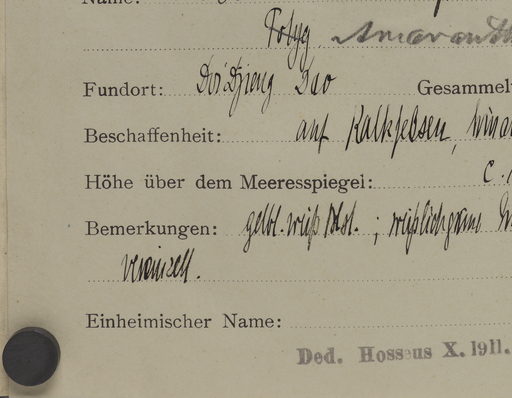 Name:
Polyg Amaranth
Fundort: Doi Djieng Dao Gesammelt
Beschaffenheit: auf Kalkfelsen,
Höhe über dem Meeresspiegel: c.
Bemerkungen: gelbl. weiß ; weißlichgrau
vereinzelt.
Einheimischer Name:
Ded. Hosseus X. 1911.